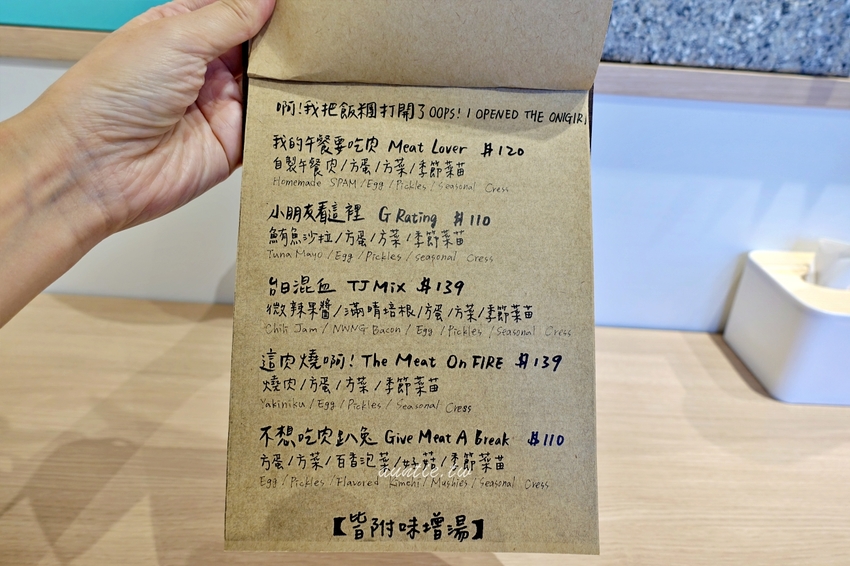 啊!我把飯糰打開了OOPS! I OPENED THE ONIGIRI
我的午餐要吃肉 Meat Lover $120
自製午餐肉/方蛋/方菜/季節菜苗
Homemade SPAM/Egg/Pickles/Seasonal Cress
小朋友看這裡 G Rating $110
鮪魚沙拉/方蛋/方菜/季節菜苗
Tuna Mayo/Egg/Pickles/seasonal Cress
台日混血 TJ Mix $139
微辣果醬/滿晴培根/方蛋/方菜/季節菜苗
Chili Jam/NWNG Bacon/Egg/Pickles/Seasonal Cress
這肉燒啊! The Meat On FIRE $139
燒肉/方蛋/方菜/季節菜苗
Yakiniku/Egg/Pickles/Seasonal Cress
不想吃肉趴兔 Give Meat A Break $110
方蛋/方菜/百香泡菜/好菇/季節菜苗
auntie.tw
Egg/Pickles/Flavored Kimchi/Mushies/Seasonal Cress
【皆附味增湯】